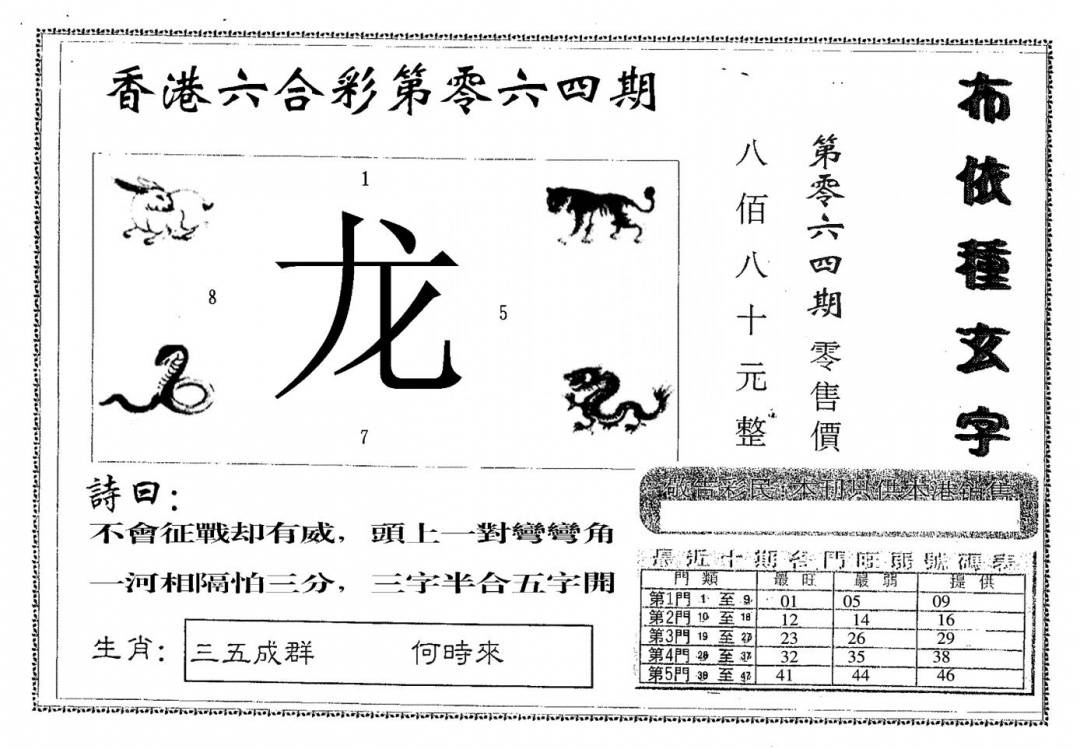 香港六合彩第零六四期
布依種玄字
第零六四期零售價
八佰八十元整
1
龙
8
5
7
詩曰：
不會征戰却有威，頭上一對彎彎角
一河相隔怕三分，三字半合五字開
生肖：三五成群 何時來
敬告彩民：本刊只供本港銷售
最近十期各門旺弱號碼表
門類 最旺 最弱 提供
第1門 1 至 9 01 05 09
第2門 10 至 18 12 14 16
第3門 19 至 27 23 26 29
第4門 28 至 37 32 35 38
第5門 38 至 47 41 44 46